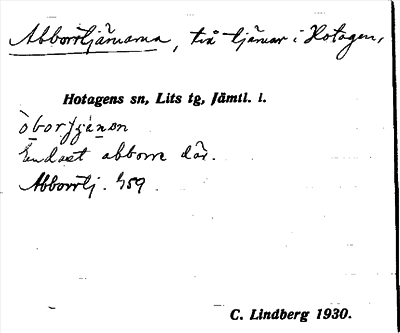 Abborrtjärnarna, två tjärnar i Hotagen,
Hotagens sn, Lits tg, Jämtl. l.
Endast abborre där.
Abborrtj. 459.
C. Lindberg 1930.